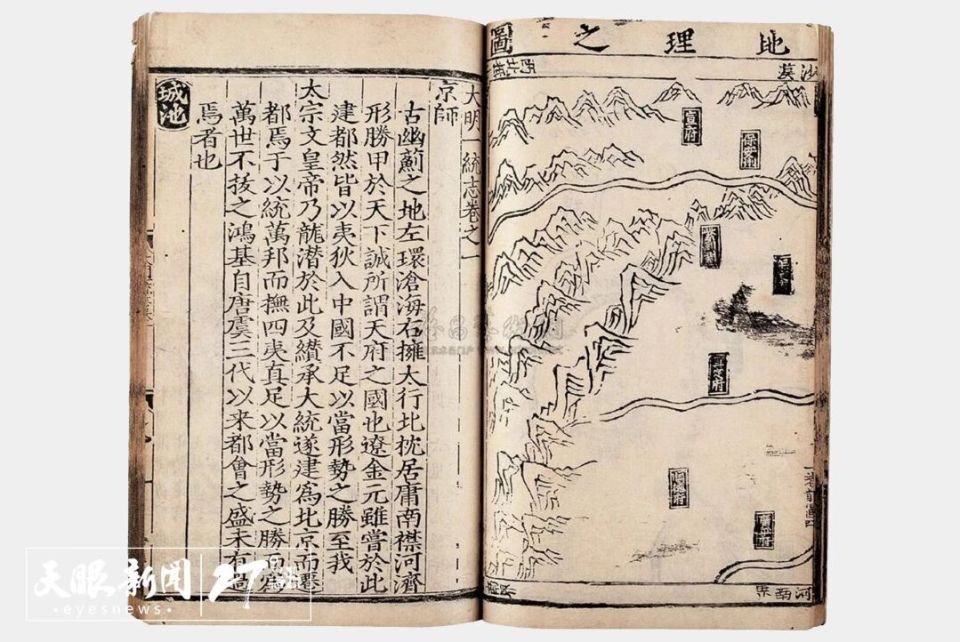 地理之圖
沙漠
宣府
真定府
順德府
廣平府
河南界
大明一統志卷之一
京師
古幽薊之地左環滄海右擁太行北枕居庸南襟河濟
形勝甲於天下誠所謂天府之國也遼金元雖嘗於此
建都然皆以夷狄入中國不足以當形勢之勝至我
太宗文皇帝乃龍潛於此及纘承大統遂建爲北京而遷
都焉于以統萬邦而撫四夷真足以當形勢之勝而爲
萬世不拔之鴻基自唐虞三代以來都會之盛未有過
焉者也
城池
天眼新闻
eyesnews